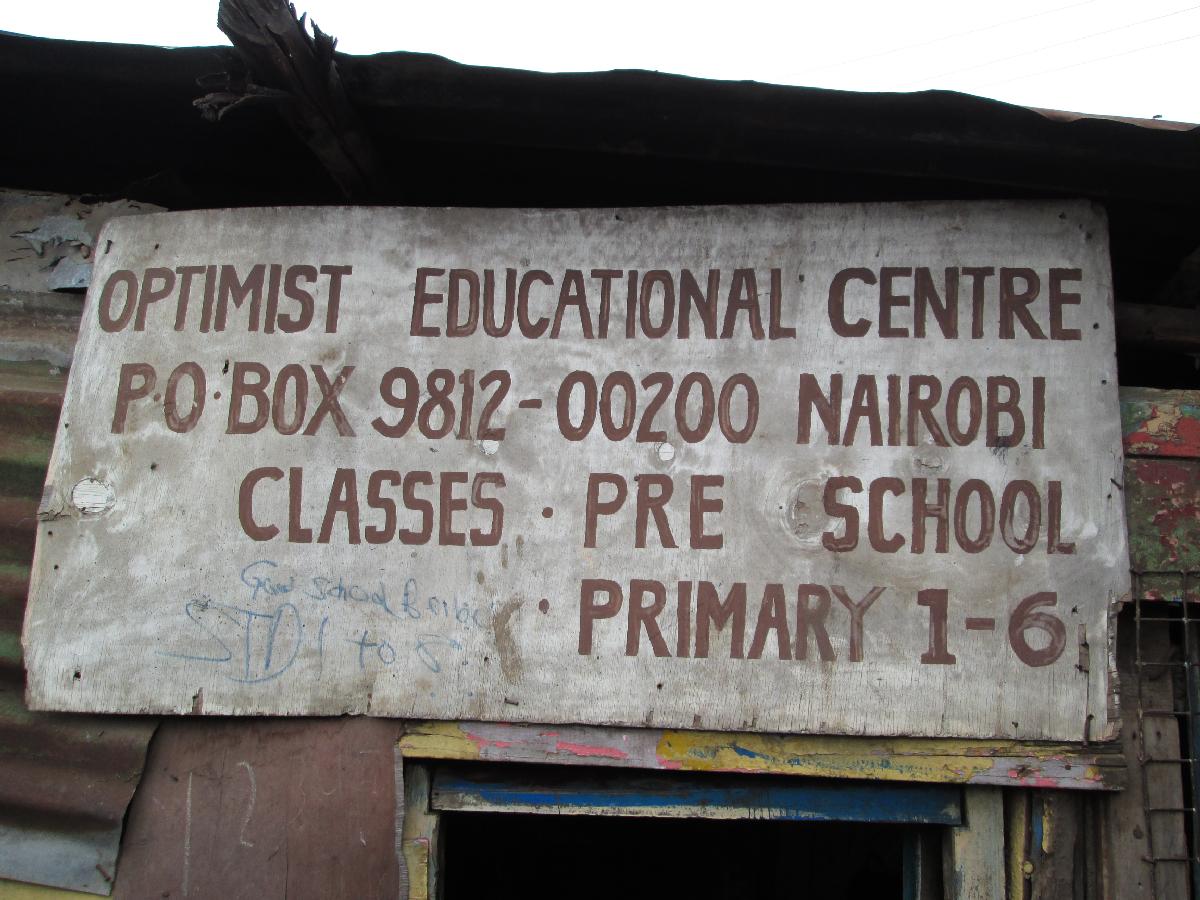 OPTIMIST EDUCATIONAL CENTRE
P.O. BOX 9812-00200 NAIROBI
CLASSES . PRE SCHOOL
. PRIMARY 1-6
Good School
STD 1 to 8
12